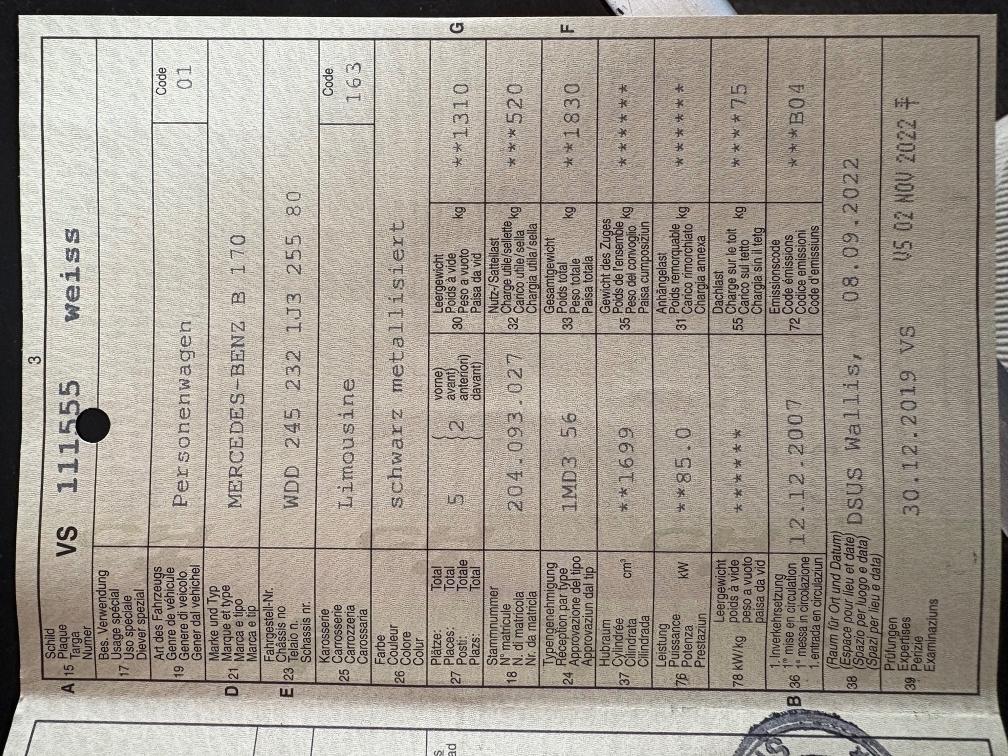 3
A 15 Schild
Plaque
Targa
Numer
VS 111555 weiss
17 Bes. Verwendung
Usage spécial
Uso speciale
Diever spezial
19 Art des Fahrzeugs
Genre de véhicule
Genere di veicolo
Gener dal vehichel
Personenwagen
Code
01
D 21 Marke und Typ
Marque et type
Marca e tipo
Marca e tip
MERCEDES-BENZ B 170
E 23 Fahrgestell-Nr.
Châssis no
Telaio n.
Schassis nr.
WDD 245 232 1J3 255 80
25 Karosserie
Carrosserie
Carrozzeria
Carossaria
Limousine
Code
163
26 Farbe
Couleur
Colore
Colur
schwarz metallisiert
27 Plätze: Total
Places: Total
Posti: Totale
Plazs: Total
5 2 vorne)
avant)
anteriori)
davant)
30 Leergewicht
Poids à vide
Peso a vuoto
Paisa da vid
kg **1310 G
18 Stammnummer
N° matricule
N. matricola
Nr. da matricla
204.093.027
32 Nutz-/Sattellast
Charge utile/sellette
Carico utile/sella
Chargia utila/sella
kg ***520
24 Typengenehmigung
Réception par type
Approvazione del tipo
Approvaziun dal tip
1MD3 56
33 Gesamtgewicht
Poids total
Peso totale
Paisa totala
kg **1830 F
37 Hubraum
Cylindrée
Cilindrata
Cilindrada
cm³ **1699
35 Gewicht des Zuges
Poids de l'ensemble
Peso del convoglio
Paisa cumposiziun
kg ******
76 Leistung
Puissance
Potenza
Prestaziun
kW **85.0
31 Anhängelast
Poids remorquable
Carico rimorchiato
Chargia annexa
kg ******
78 kW/kg Leergewicht
poids à vide
peso a vuoto
paisa da vid
******
55 Dachlast
Charge sur le toit
Carico sul tetto
Chargia sin il tetg
kg ****75
B 36 1. Inverkehrsetzung
1re mise en circulation
1a messa in circolazione
1. entrada en circulaziun
12.12.2007
72 Emissionscode
Code émissions
Codice emissioni
Code d'emissiuns
***B04
38 (Raum für Ort und Datum)
(Espace pour lieu et date)
(Spazio per luogo e data)
(Spazi per lieu e data)
DSUS Wallis, 08.09.2022
39 Prüfungen
Expertises
Perizie
Examinaziuns
30.12.2019 VS
VS 02 NOV 2022